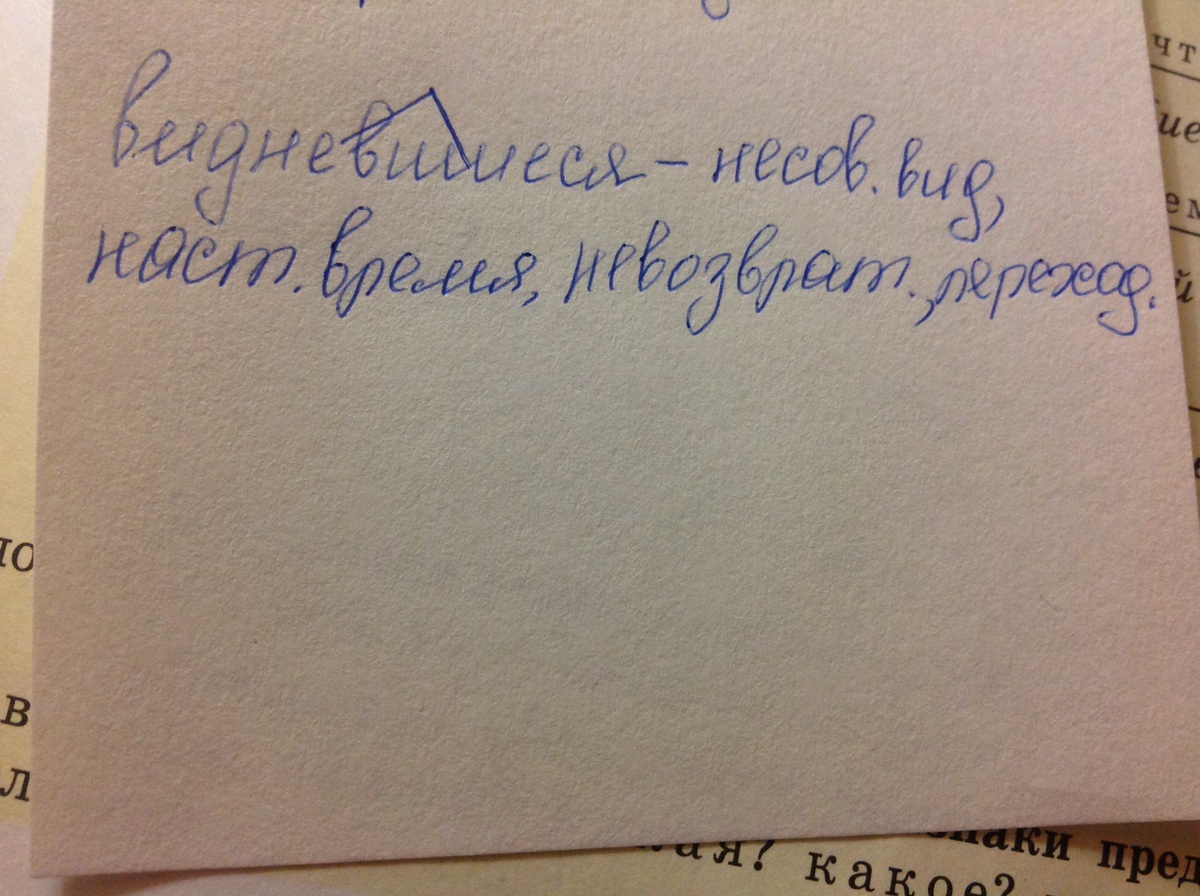 чт
ие
ем
видневшиеся – несов. вид,
наст. время, невозврат., переход.
й
ло
в
л
знаки пред
кая? какое?